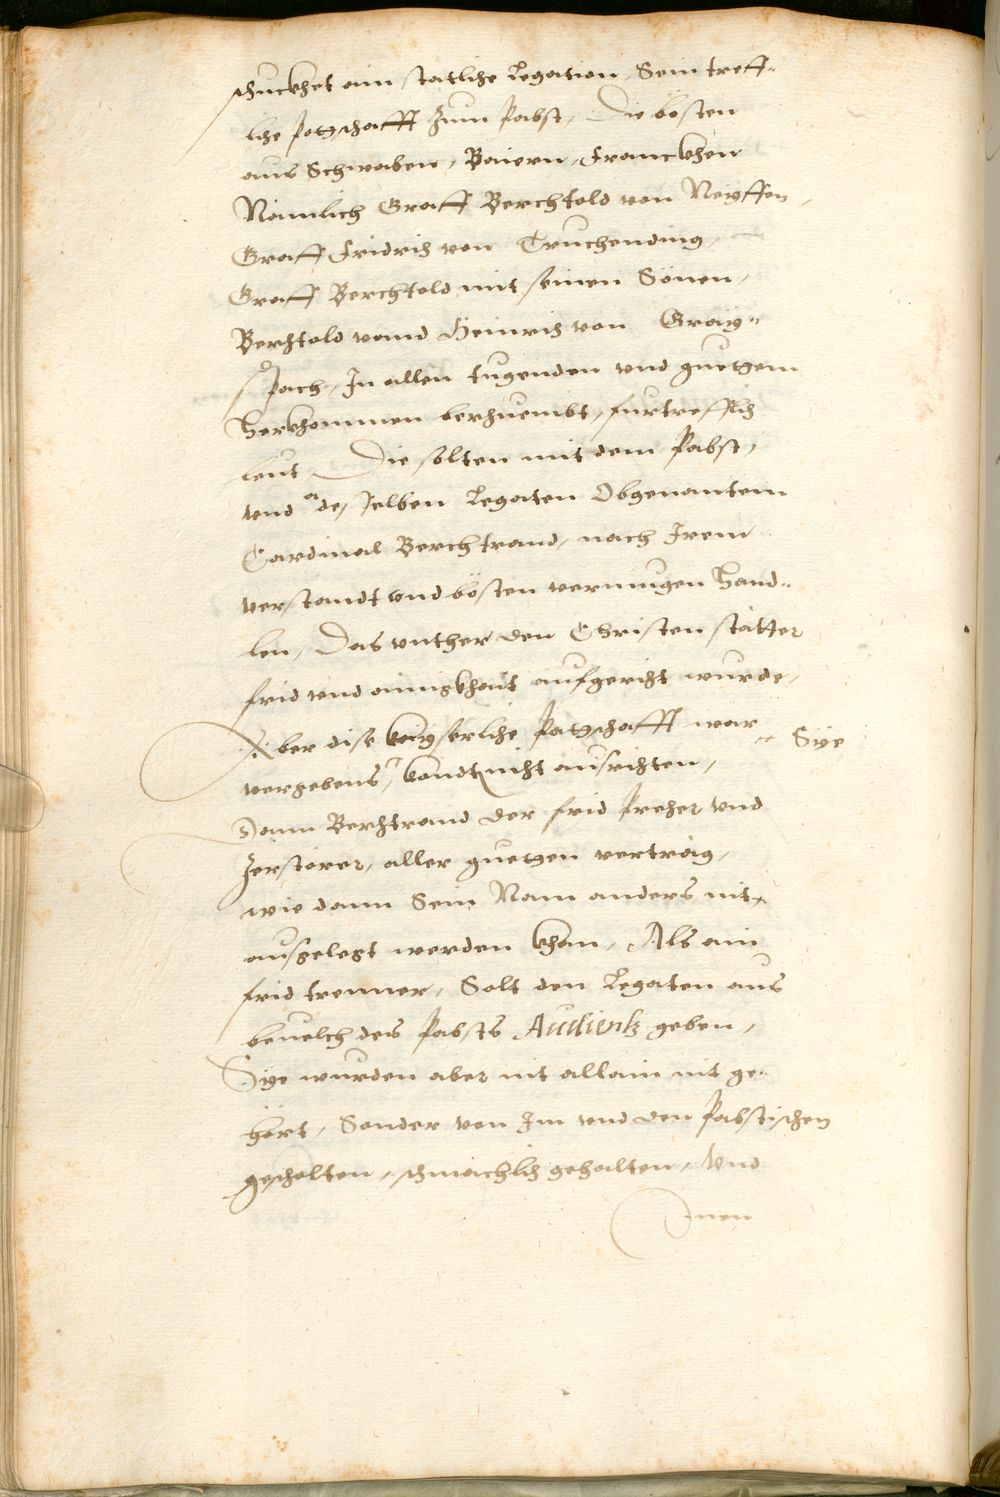 schuckhet ain statliche Legation, Sein treff-
liche potschafft zum Pabst, Die bösten
aus Schwaben, Baiern, Franckhen
Nämlich Graff Berchtold von Neyffen,
Graff Fridrich von Truchending,
Graff Berchtold mit seinen Sönen,
Berchtold vnnd Heinrich von Grayß-
pach, In allen tugenden vnd guetem
Herkhommen berhuembt, furtrefflich
leut, Die solten mit dem Pabst,
vnd deselben Legaten Obgenantem
Cardinal Berchtrand, nach Irem
verstandt vnd bösten vermugen Hand-
len, Das vnther den Christen stätter
frid vnd ainigkhait aufgericht wurde,
Aber dise kayserliche Potschafft war
Sye
vergebens, kondt nicht ausrichten,
Dann Berchtrand der frid precher vnd
Zerstörer, aller gueten verträg,
wie dann Sein Nam anders nit
ausgelegt werden khan, Als ain
frid trenner, Solt den Legaten aus
beuelch des Pabsts Audientz geben,
Sye wurden aber nit allain nit ge-
hört, Sonder von Im vnd den Pabstischen
gescholten, schmächlich gehalten, Vnd
Inen